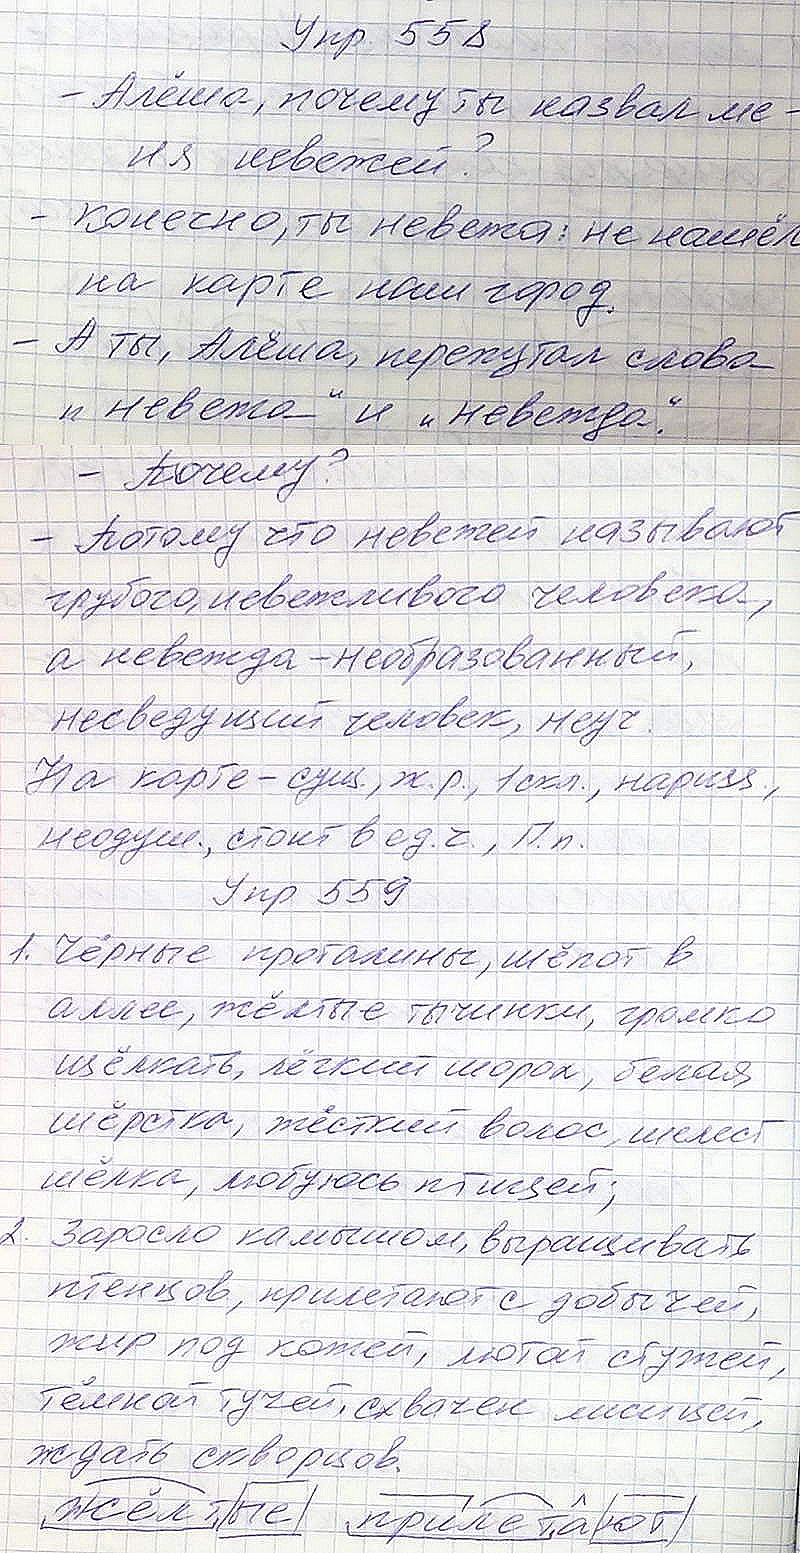 Упр. 558
- Алёша, почему ты назвал ме-
ня невежей?
- Конечно, ты невежа: не нашёл
на карте наш город.
- А ты, Алёша, перепутал слова
„невежа“ и „невежда“.
- Почему?
- Потому что невежей называют
грубого, невежливого человека,
а невежда - необразованный,
несведущий человек, неуч.
На карте - сущ., ж.р., 1 скл., нариц.,
неодуш., стоит в ед.ч., П.п.
Упр 559
1. Чёрные проталины, шёпот в
аллее, жёлтые тычинки, громко
щёлкать, лёгкий шорох, белая
шёрстка, жёсткий волос, шелест
шёлка, любуюсь птицей;
2. Заросло камышом, выращивать
птенцов, прилетают с добычей,
жир под кожей, лютой стужей,
тёмной тучей, схвачен лисицей,
ждать скворцов.
жёлтые прилетают